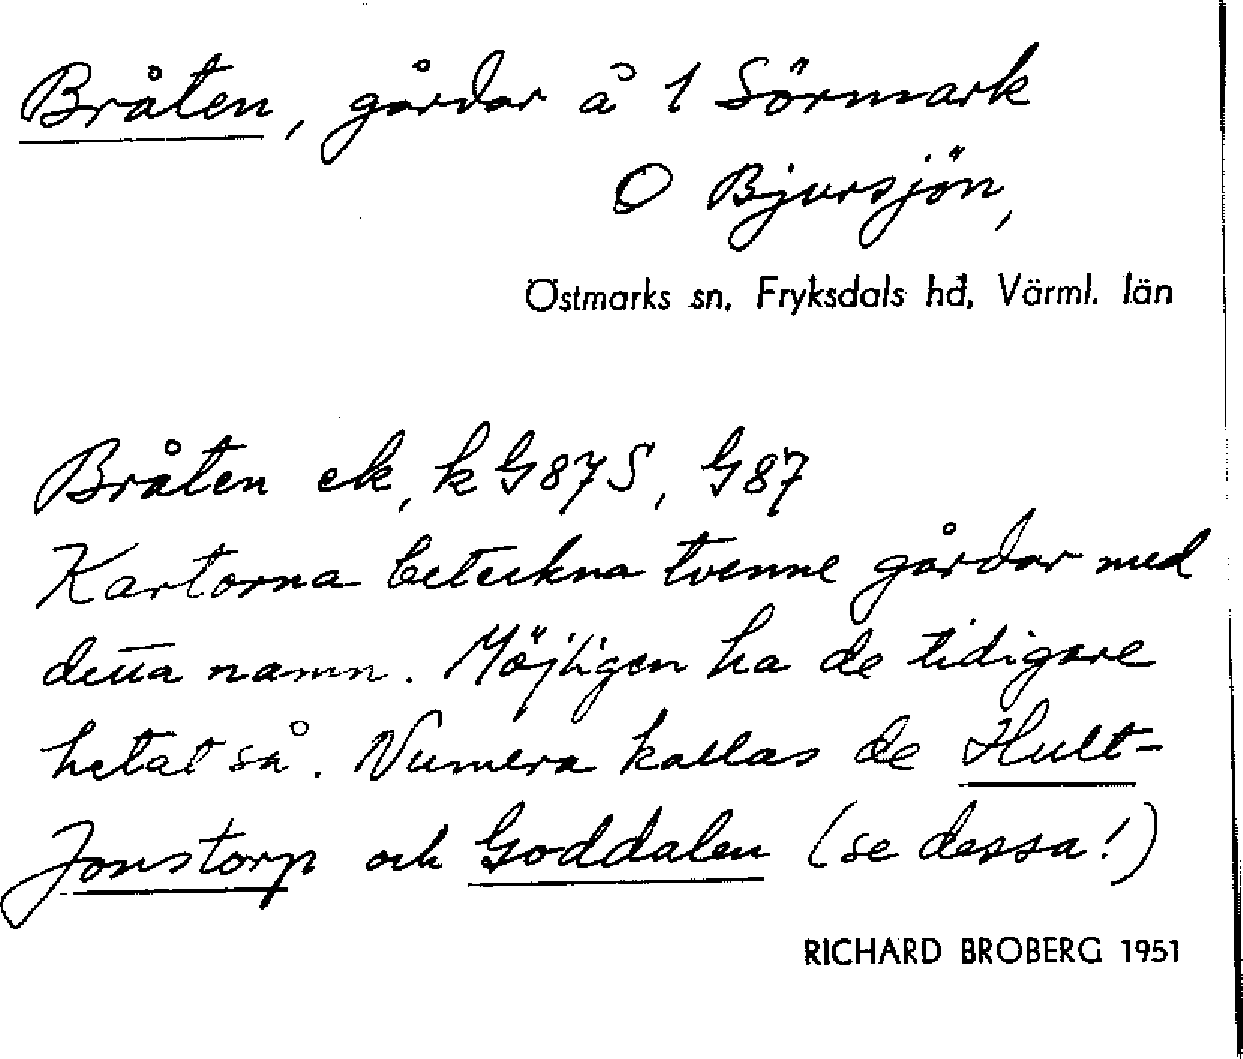 Bråten, gårdar å 1 Sörmark
O Bjursjön,
Östmarks sn, Fryksdals hd, Värml. län
Bråten ek, k G87S, G87
Kartorna beteckna tvenne gårdar med
detta namn. Möjligen ha de tidigare
hetat så. Numera kallas de Hult-
Jonstorp och Goddalen (se dessa!)
RICHARD BROBERG 1951